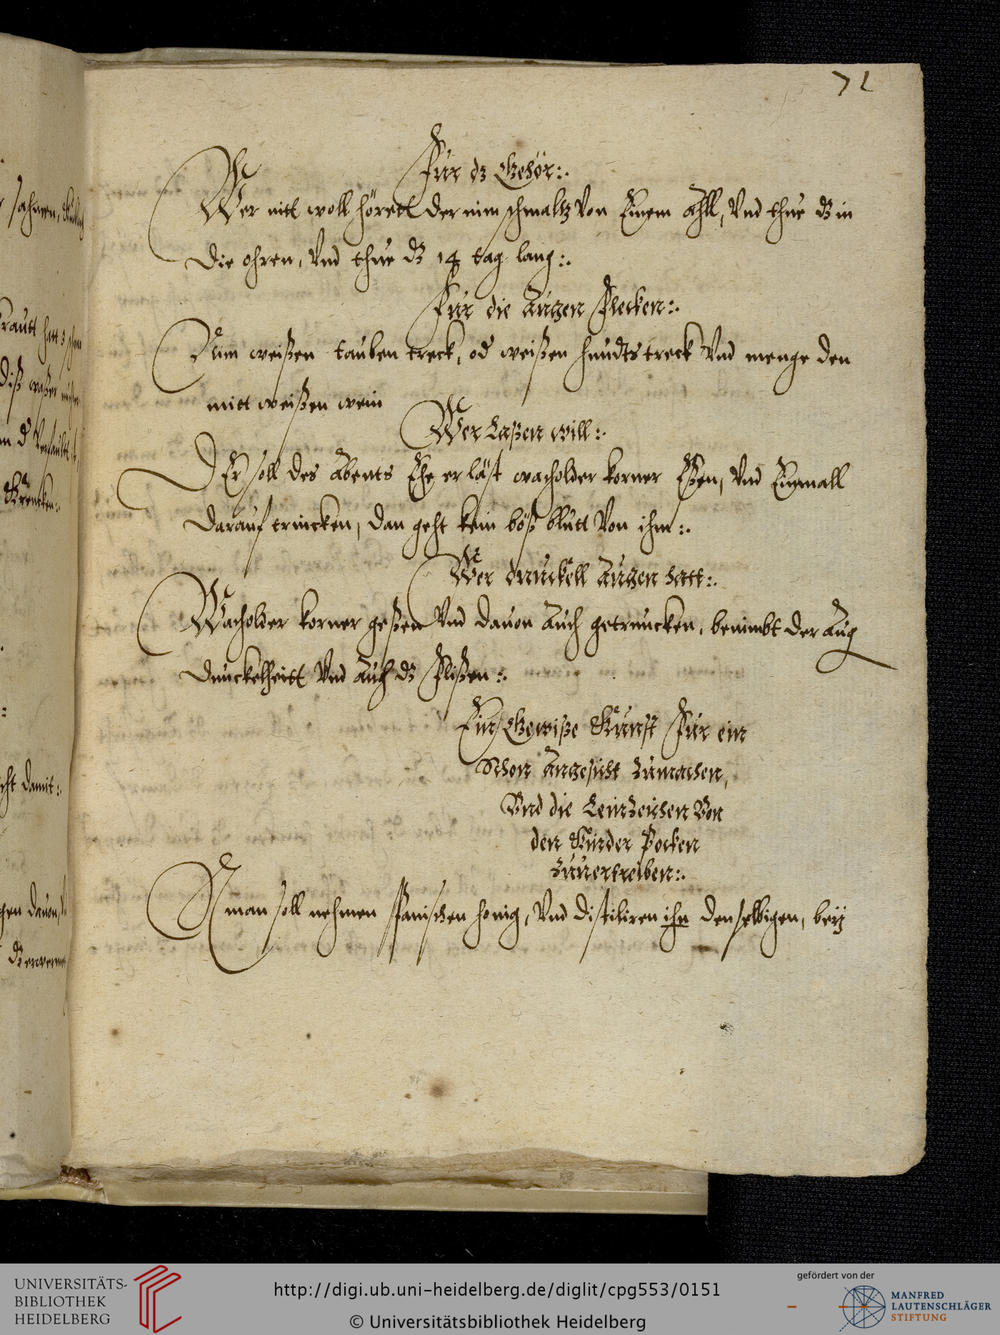 71
Für dz Gehör:.
Wer nitt woll hörett der nim schmaltz von Einem Ahll, Vnd thue dz in
die ohren, Vnd thue dz 14 tag lang:.
Für die Augen Flecken:.
Nim weißen tauben treck, od weißen hundts treck Vnd menge den
mitt weißen wein
Wer Laßen will:.
Der soll des Abents Ehe er läst wacholder korner Eßen, Vnd Einmall
darauf trincken, dan geht kein böß blutt Von ihm:.
Wer dunckell Augen hatt:.
Wacholder korner geßen Vnd dauon Auch getruncken, benimbt der Aug
dunckelheitt Vnd Auch dz Flißen:.
Ein Gewiße Kunst Für ein
Schon Angesicht zumachen,
Vnd die Von
den Kinder Pocken
zuuertreiben:.
Man soll nehmen spanischen honig, Vnd distiliren ihn denselbigen, beÿ
krautt hatt
diß waßer
cht damit:.
gen dauon,
UNIVERSITÄTS-
BIBLIOTHEK
HEIDELBERG
http://digi.ub.uni-heidelberg.de/diglit/cpg553/0151
© Universitätsbibliothek Heidelberg
gefördert von der
MANFRED
LAUTENSCHLÄGER
STIFTUNG